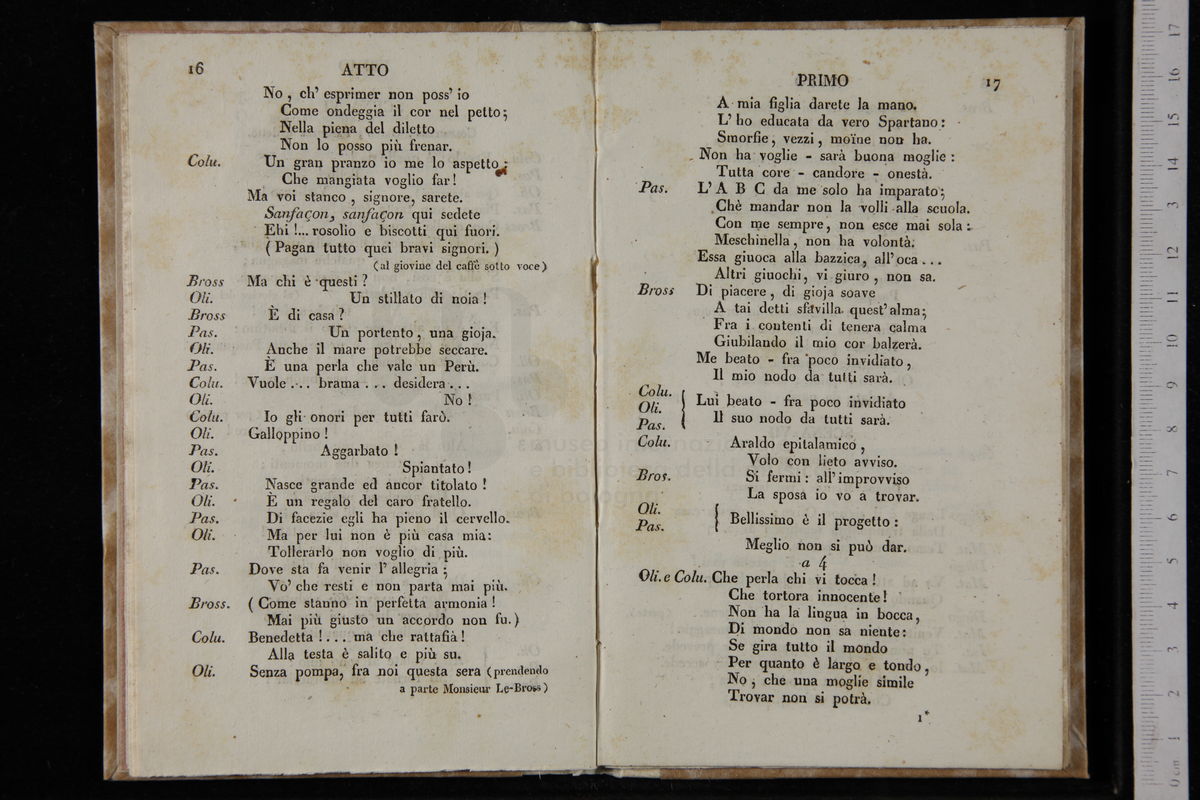 16 ATTO
No, ch' esprimer non poss' io
Come ondeggia il cor nel petto;
Nella piena del diletto
Non lo posso più frenar.
Colu. Un gran pranzo io me lo aspetto;
Che mangiata voglio far!
Ma voi stanco, signore, sarete.
Sanfaçon, sanfaçon qui sedete
Ehi!... rosolio e biscotti qui fuori.
(Pagan tutto quei bravi signori.)
(al giovine del caffè sotto voce)
Bross Ma chi è questi?
Oli. Un stillato di noia!
Bross È di casa?
Pas. Un portento, una gioja.
Oli. Anche il mare potrebbe seccare.
Pas. È una perla che vale un Perù.
Colu. Vuole... brama... desidera...
Oli. No!
Colu. Io gli onori per tutti farò.
Oli. Galloppino!
Pas. Aggarbato!
Oli. Spiantato!
Pas. Nasce grande ed ancor titolato!
Oli. È un regalo del caro fratello.
Pas. Di facezie egli ha pieno il cervello.
Oli. Ma per lui non è più casa mia:
Tollerarlo non voglio di più.
Pas. Dove sta fa venir l' allegria;
Vo' che resti e non parta mai più.
Bross. (Come stanno in perfetta armonia!
Mai più giusto un accordo non fu.)
Colu. Benedetta!... ma che rattafià!
Alla testa è salito e più su.
Oli. Senza pompa, fra noi questa sera (prendendo
a parte Monsieur Le-Bross)
PRIMO 17
A mia figlia darete la mano.
L' ho educata da vero Spartano:
Smorfie, vezzi, moïne non ha.
Non ha voglie - sarà buona moglie:
Tutta core - candore - onestà.
Pas. L' A B C da me solo ha imparato;
Chè mandar non la volli alla scuola.
Con me sempre, non esce mai sola:
Meschinella, non ha volontà.
Essa giuoca alla bazzica, all' oca...
Altri giuochi, vi giuro, non sa.
Bross Di piacere, di gioja soave
A tai detti sfavilla quest' alma;
Fra i contenti di tenera calma
Giubilando il mio cor balzerà.
Me beato - fra poco invidiato,
Il mio nodo da tutti sarà.
Colu.
Oli. Lui beato - fra poco invidiato
Pas. Il suo nodo da tutti sarà.
Colu. Araldo epitalamico,
Volo con lieto avviso.
Bros. Si fermi: all' improvviso
La sposa io vo a trovar.
Oli.
Pas. Bellissimo è il progetto:
Meglio non si può dar.
a 4
Oli. e Colu. Che perla chi vi tocca!
Che tortora innocente!
Non ha la lingua in bocca,
Di mondo non sa niente:
Se gira tutto il mondo
Per quanto è largo e tondo,
No, che una moglie simile
Trovar non si potrà.
1*